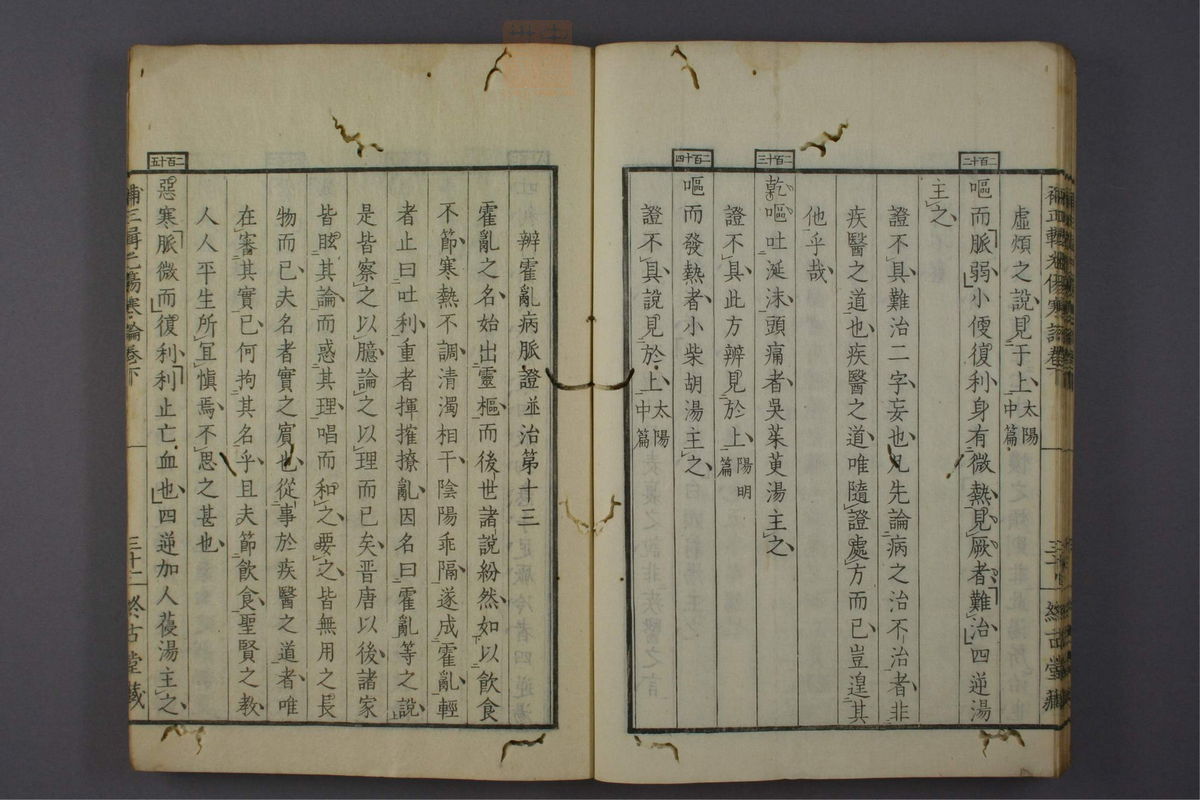 虛煩之說見于上太陽中篇
二百十二
嘔而脈弱小便復利身有微熱見厥者難治四逆湯
主之
證不具難治二字妄也凡先論病之治不治者非
疾醫之道也疾醫之道唯隨證處方而已豈遑其
他乎哉
二百十三
乾嘔吐涎沫頭痛者吳茱萸湯主之
證不具此方辨見於上陽明篇
二百十四
嘔而發熱者小柴胡湯主之
證不具說見於上太陽中篇
終古堂藏
辨霍亂病脈證並治第十三
霍亂之名始出靈樞而後世諸說紛然如以飲食
不節寒熱不調清濁相干陰陽乖隔遂成霍亂輕
者止曰吐利重者揮攉撩亂因名曰霍亂等之說
是皆察之以臆論之以理而已矣晋唐以後諸家
皆眩其論而惑其理唱而和之要之皆無用之長
物而已夫名者實之賓也從事於疾醫之道者唯
在審其實已何拘其名乎且夫節飲食聖賢之教
人人平生所宜愼焉不思之甚也
二百十五
惡寒脈微而復利利止亡血也四逆加人葠湯主之
傷寒論卷下
三十二
終古堂藏